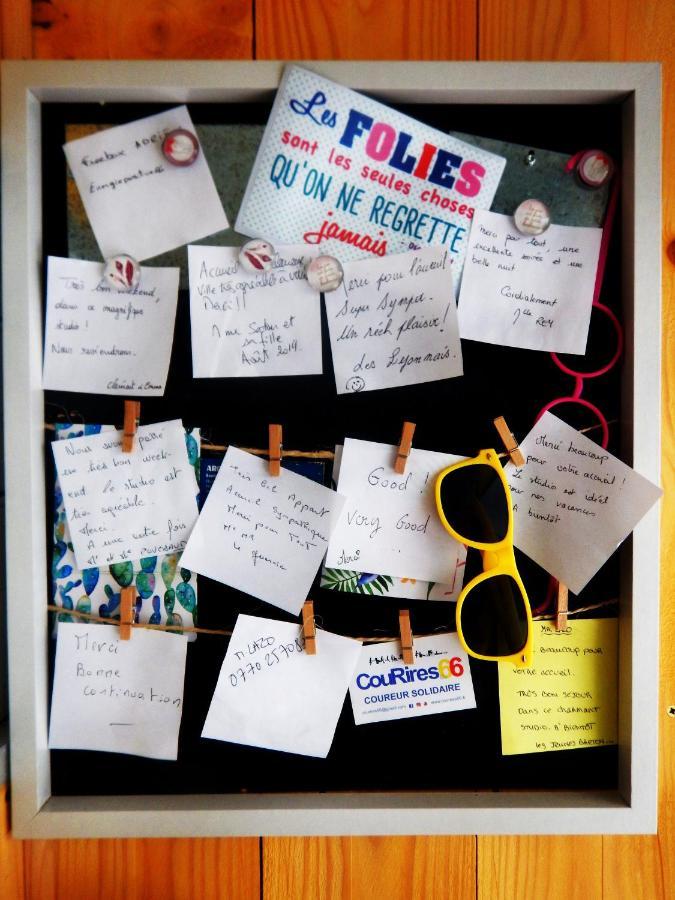 Les FOLIES
sont les seules choses
QU'ON NE REGRETTE
jamais
Facebook
Merci pour tout, une
excellente soirée et une
belle nuit
Cordialement
REY
Très bon weekend,
dans ce magnifique
studio!
Nous reviendrons.
Accueil
Ville très agréable à
et
sa fille
Août 2019
Merci pour l'accueil
Super Sympa.
Un réel plaisir!
des Lyonnais.
Nous avons passé
un très bon week-
end le studio est
très agréable.
Merci.
A une autre fois
Très Bel Appart
Accueil Sympathique
Merci pour Tout
Good!
Very Good
...
Merci
Merci beaucoup
pour votre accueil!
Le studio est idéal
pour nos vacances
A bientôt
Merci
Bonne
Continuation
M. LAZO
0770 25708
CouRires66
COUREUR SOLIDAIRE
beaucoup pour
votre accueil.
TRÈS BON SÉJOUR
Dans ce charmant
STUDIO. À BIENTÔT
les Jeunes